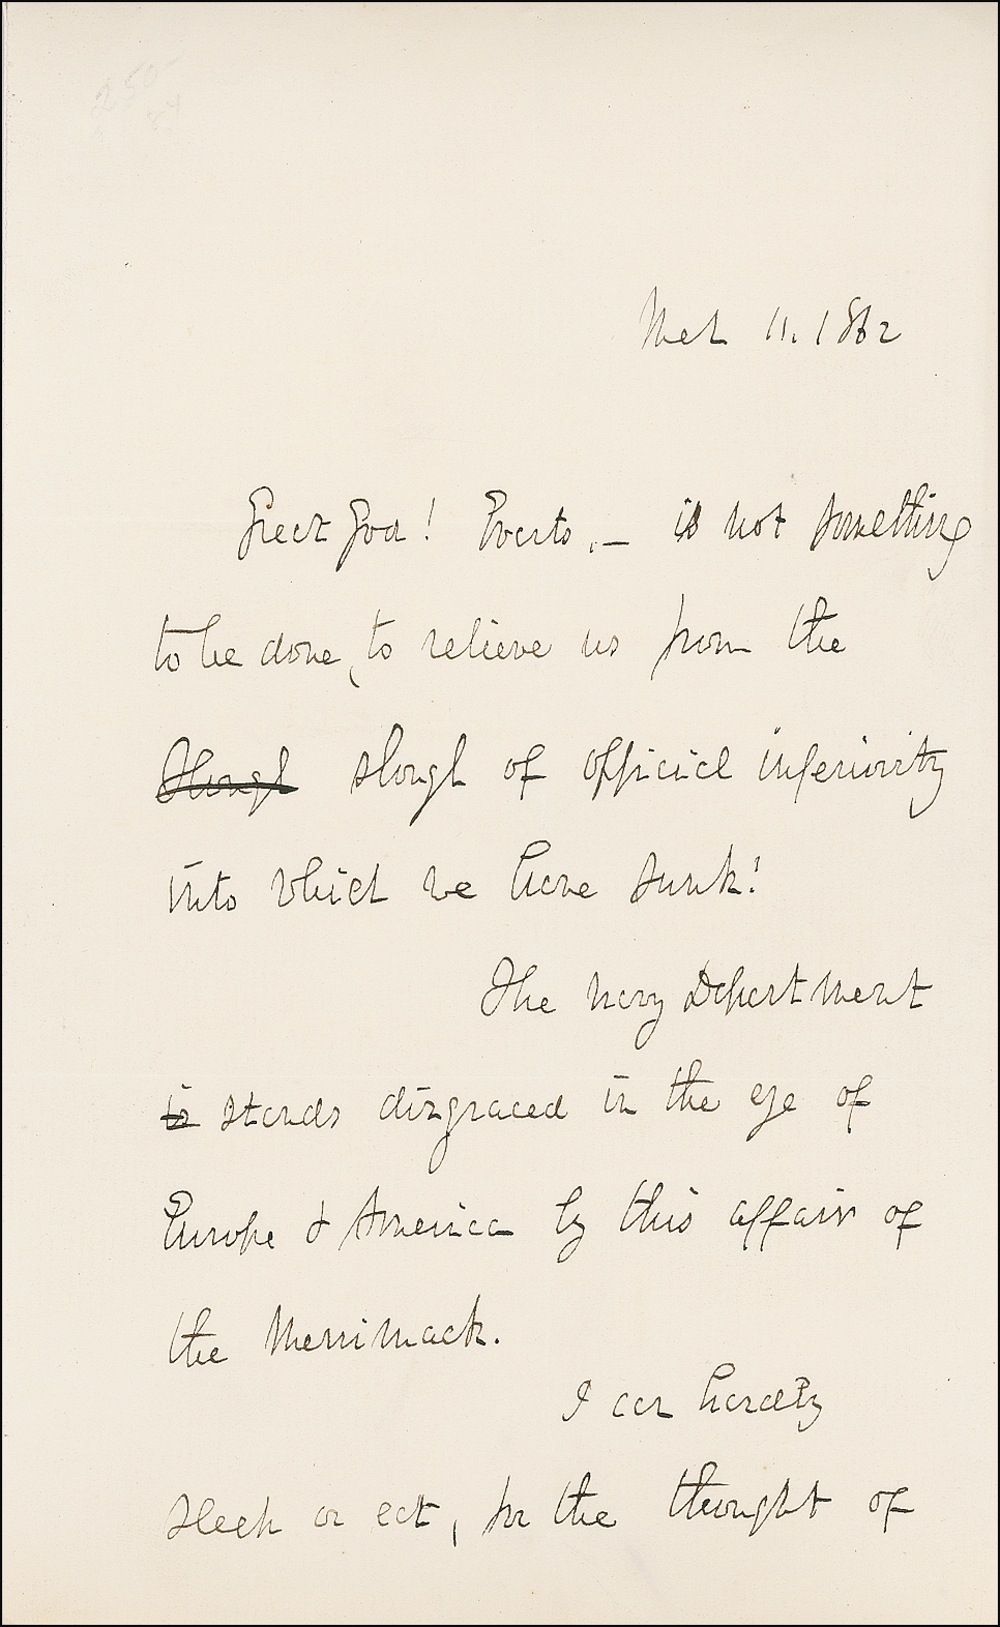 250-
Mch 11. 1862
Great God! Evarts,— is not something
to be done, to relieve us from the
Slough slough of official inferiority
into which we have sunk!
The Navy Department
is stands disgraced in the eye of
Europe & America by this affair of
the Merrimack.
I can hardly
sleep or eat, for the thought of